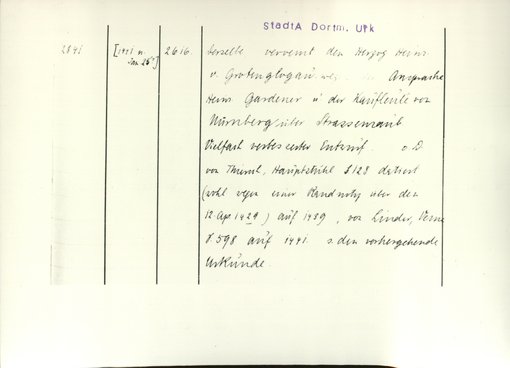 StadtA Dortm. Urk
2841 [1441 n. Jan 26] 2616. derselbe vervemt den Herzog Heinr.
v. Grotenglogau weg. Ansprache
Heinr. Gardener u der Kaufleute von
Nürnberg über Strassenraub
Vielfach verbesserter Entwurf. o. D.
von Thiersch, Hauptstuhl S 123 datiert
(wohl wegen einer Randnotiz über den
12 Apr. 1429) auf 1439, von Lindner, Veme
S. 598 auf 1441. s. den vorhergehende
Urkunde.